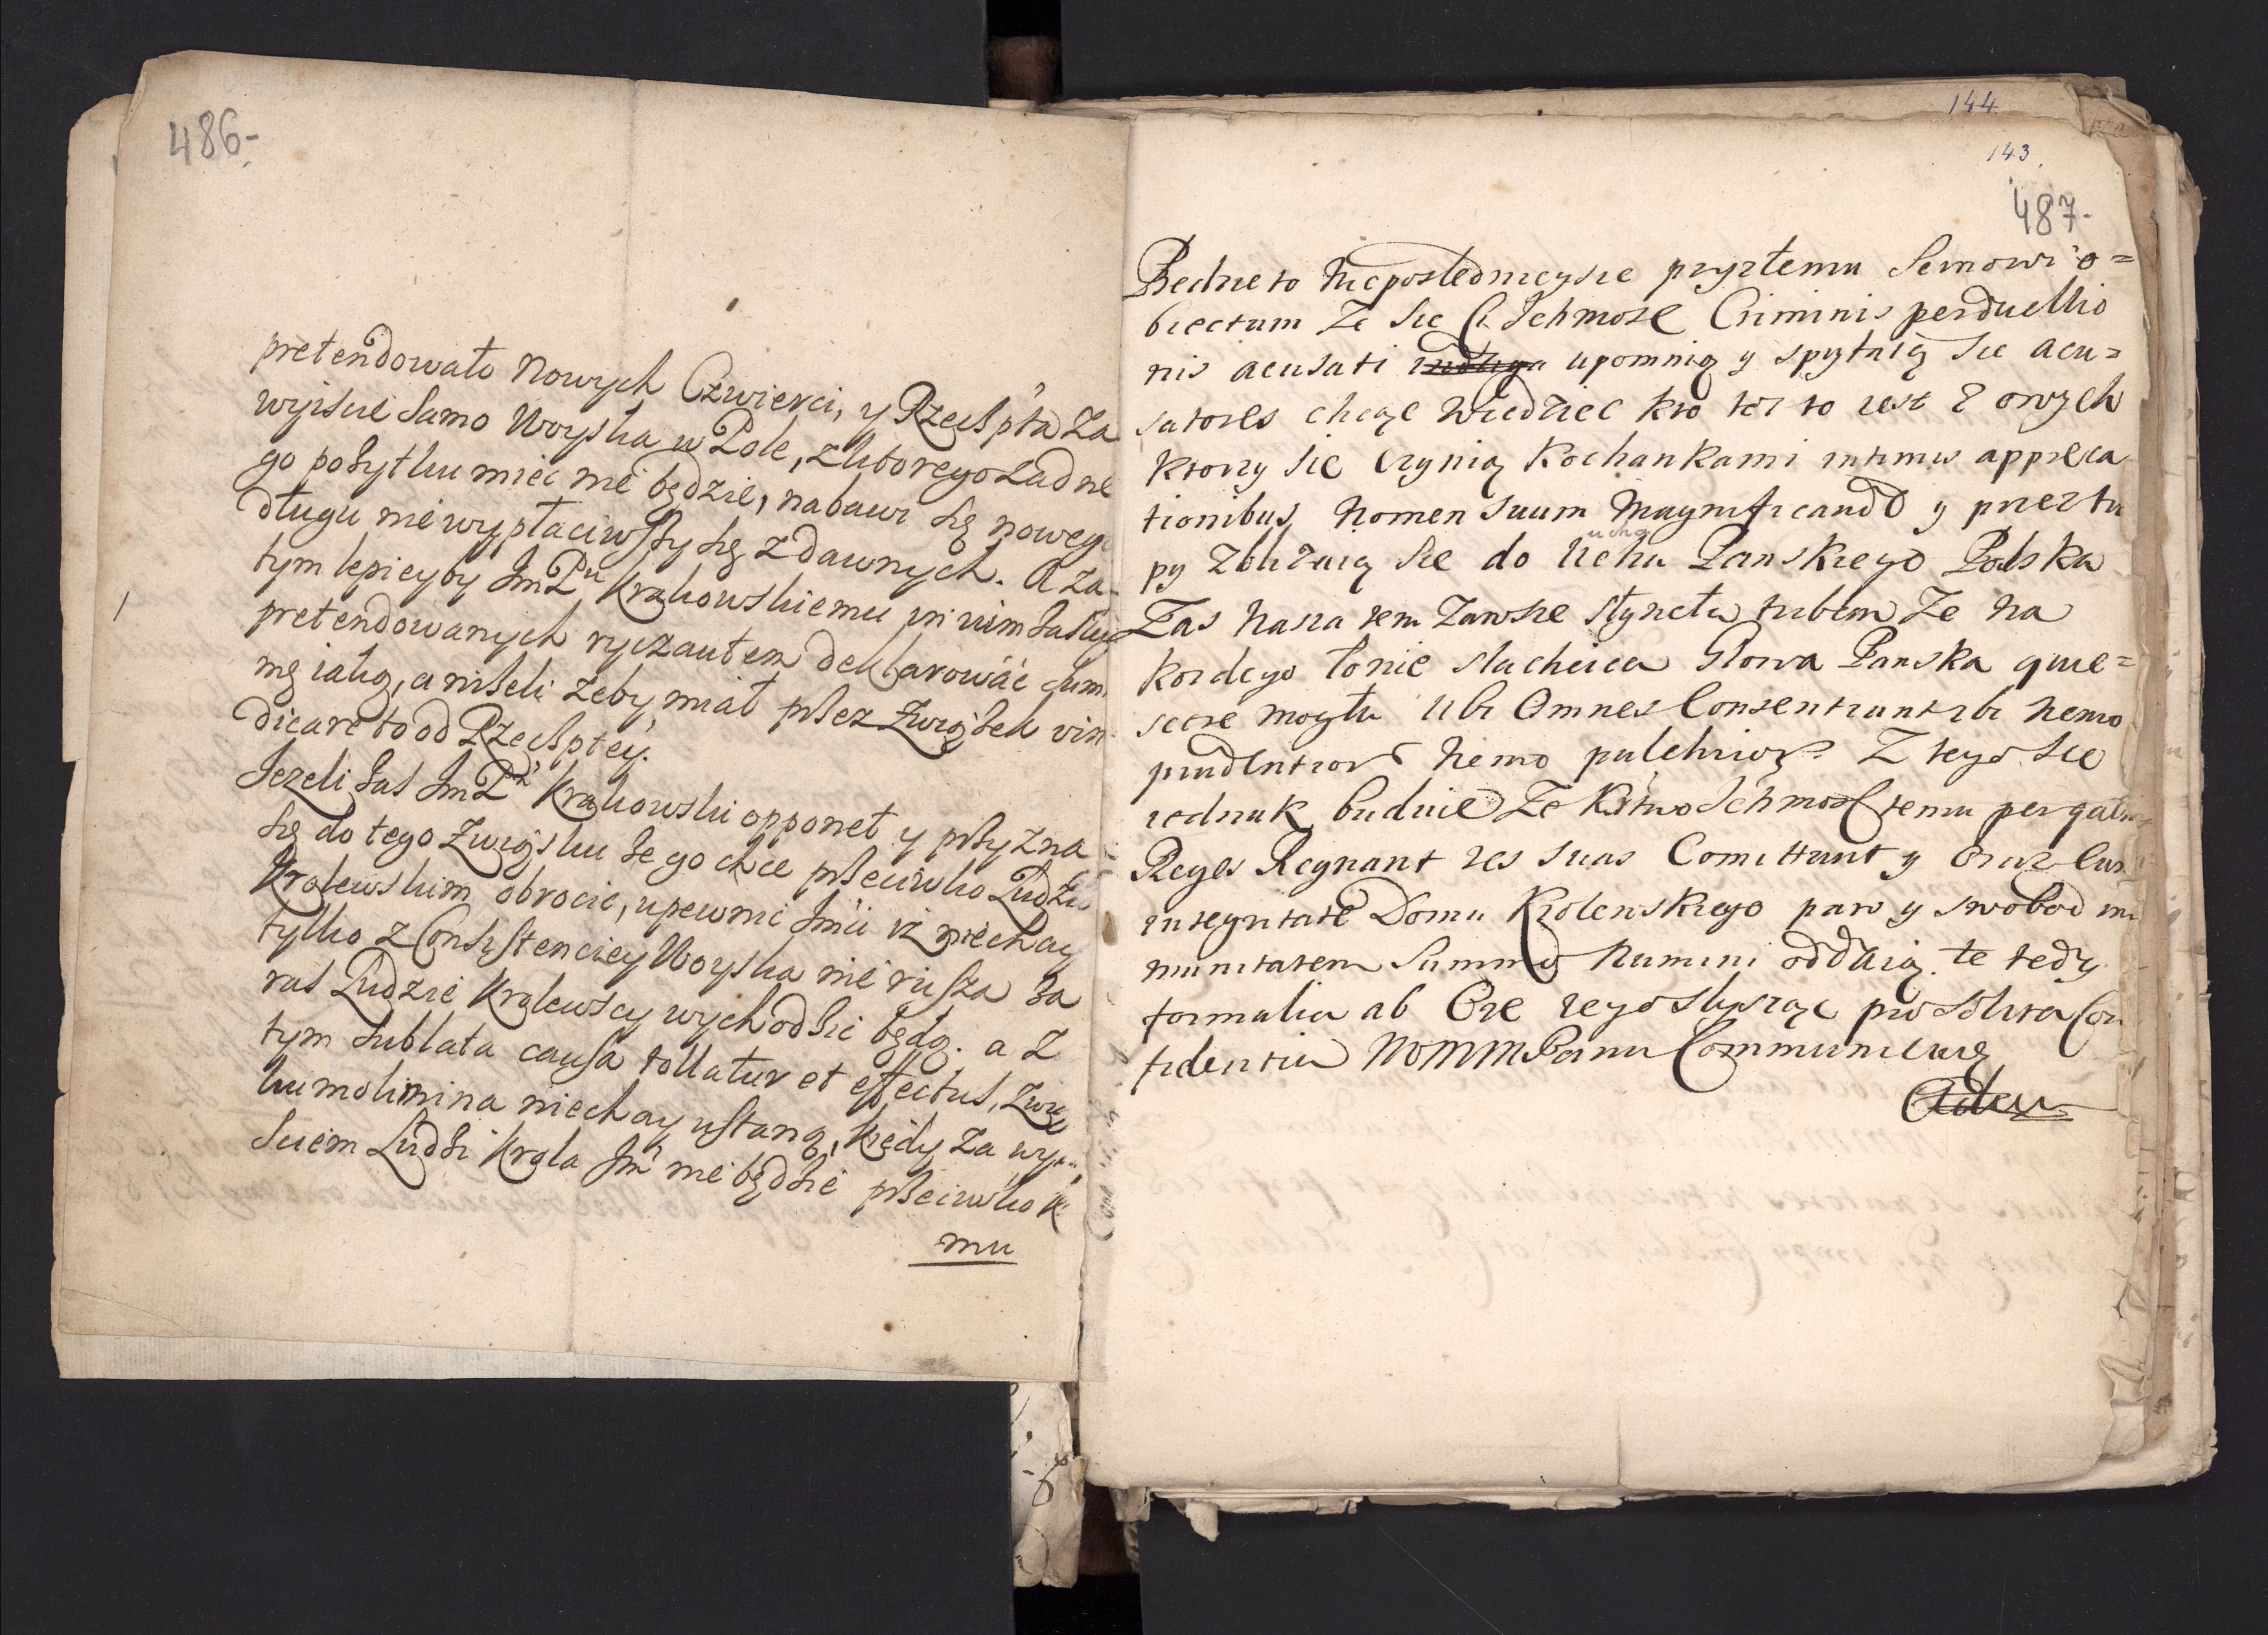 486-
pretendowało Nowych Czwierci, y Rzeczpta za
wyiście samo Woyska w Pole, z ktorego zadne
go pożytku mieć nie będzie, nabawi się noweg
długu nie wypłaciwszy się z dawnych. A za-
tym lepiey by JmPu Krakowskiemu in vim zasług
pretendowanych ryczałtem deklarować sum
mę iaką, a niżeli żeby miał przez Związek vin-
dicare to od Rzeczptey.
Jezeli zas JmP Krakowski opponet y przyzna
się do tego Związku że go chce przeciwko Ludzi
Krolewskim obrocic, upewnic Jmci iż niechay
tylko z Consistenciey Woyska nie rusza za
raz Ludzie Krolewscy wychodzic będą. a z
tym sublata causa tollatur et effectus, Zwią
ku molimina niechay ustaną, kiedy za wy
sciem Ludzi Krola Jm nie będzie przeciwko k
mu
144
143.
487-
Będzie to nieposlednieysze przyszłemu Seimowi o=
biectum że się Ci Ichmosc Criminis perduellio
nis acusati upomnią y spytaią się acu=
satores chcąc wiedziec kto tez to iest z owych
ktorzy się czynią Kochankami intimis appreca
tionibus nomen suum Magnificando y przez tu
py zbliżaią się do Ucha Panskiego Polska
ucha
Zas nasza tem zawsze słyneła tubom że na
kozdego łonie slachcica Głowa Panska quie=
scere mogła Ubi Omnes Consentiunt ibi nemo
prudentior nemo pulchrior. Z tego się
iednak budnie że Ichmosc temu per
Reges Regnant res suas Comittunt y oraz cum
integritate Domu Krolewskiego praw y swobod im
munitatem Summo Numini oddaią. te tedy
formalia ab Ore iego słysząc pro solita Con
fidentia WMMMPanu Communicuię
Adieu